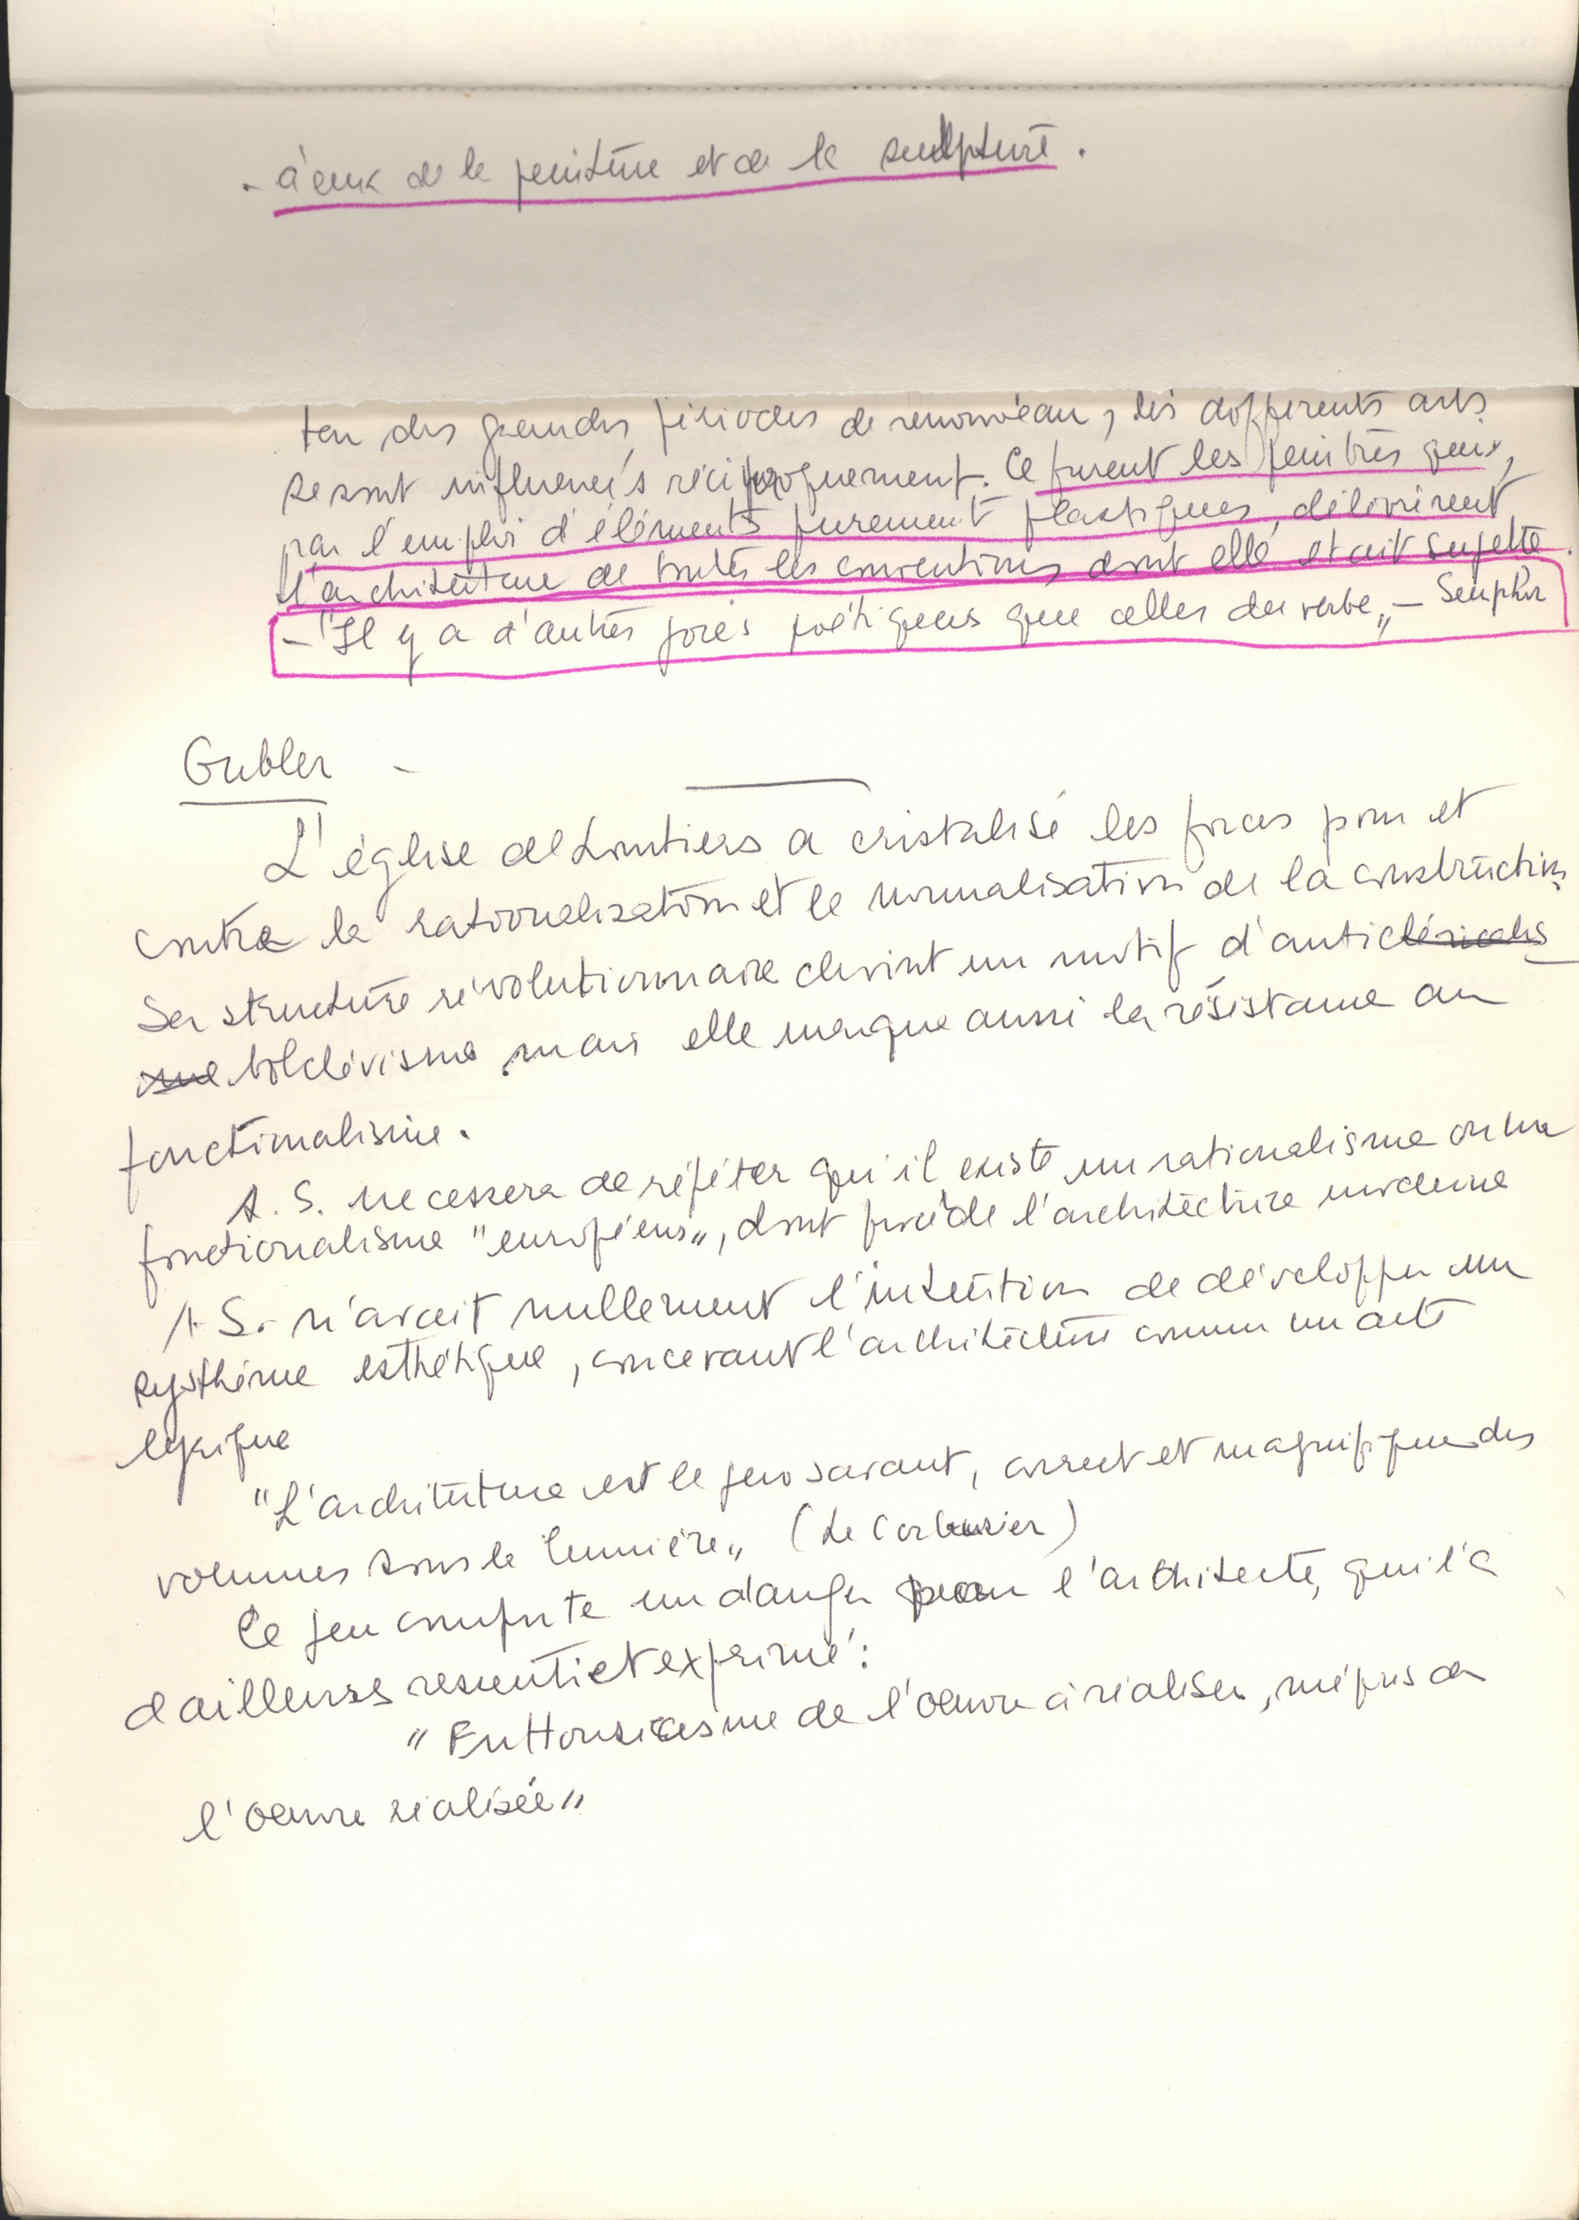 - à ceux de la peinture et de la sculpture.
des grandes périodes de renouveau, les différents arts
se sont influencés réciproquement. Ce furent les peintres qui,
par l'emploi d'éléments purement plastiques, délivrèrent
l'architecture de toutes les conventions dont elle était sujette.
- "Il y a d'autres joies poétiques que celles du verbe" - Seuphor
Gubler -
L'église de Lourtiers a cristalisé les forces pour et
contre la rationalisation et la normalisation de la construction.
Sa structure révolutionnaire devint un motif d'anticléricalis
me bolchévisme, mais elle marque aussi la résistance au
fonctionalisme.
A. S. ne cessera de répéter qu'il existe un rationalisme ou un
fonctionalisme "européens", dont procède l'architecture moderne
A. S. n'avait nullement l'intention de développer un
système esthétique, concevant l'architecture comme un acte
lyrique
"L'architecture est le jeu savant, correct et magnifique des
volumes sous la lumière" (Le Corbusier)
Ce jeu comporte un danger pour l'architecte, qui l'a
d'ailleurs ressenti et exprimé:
"Enthousiasme de l'oeuvre à réaliser, mépris de
l'oeuvre réalisée"